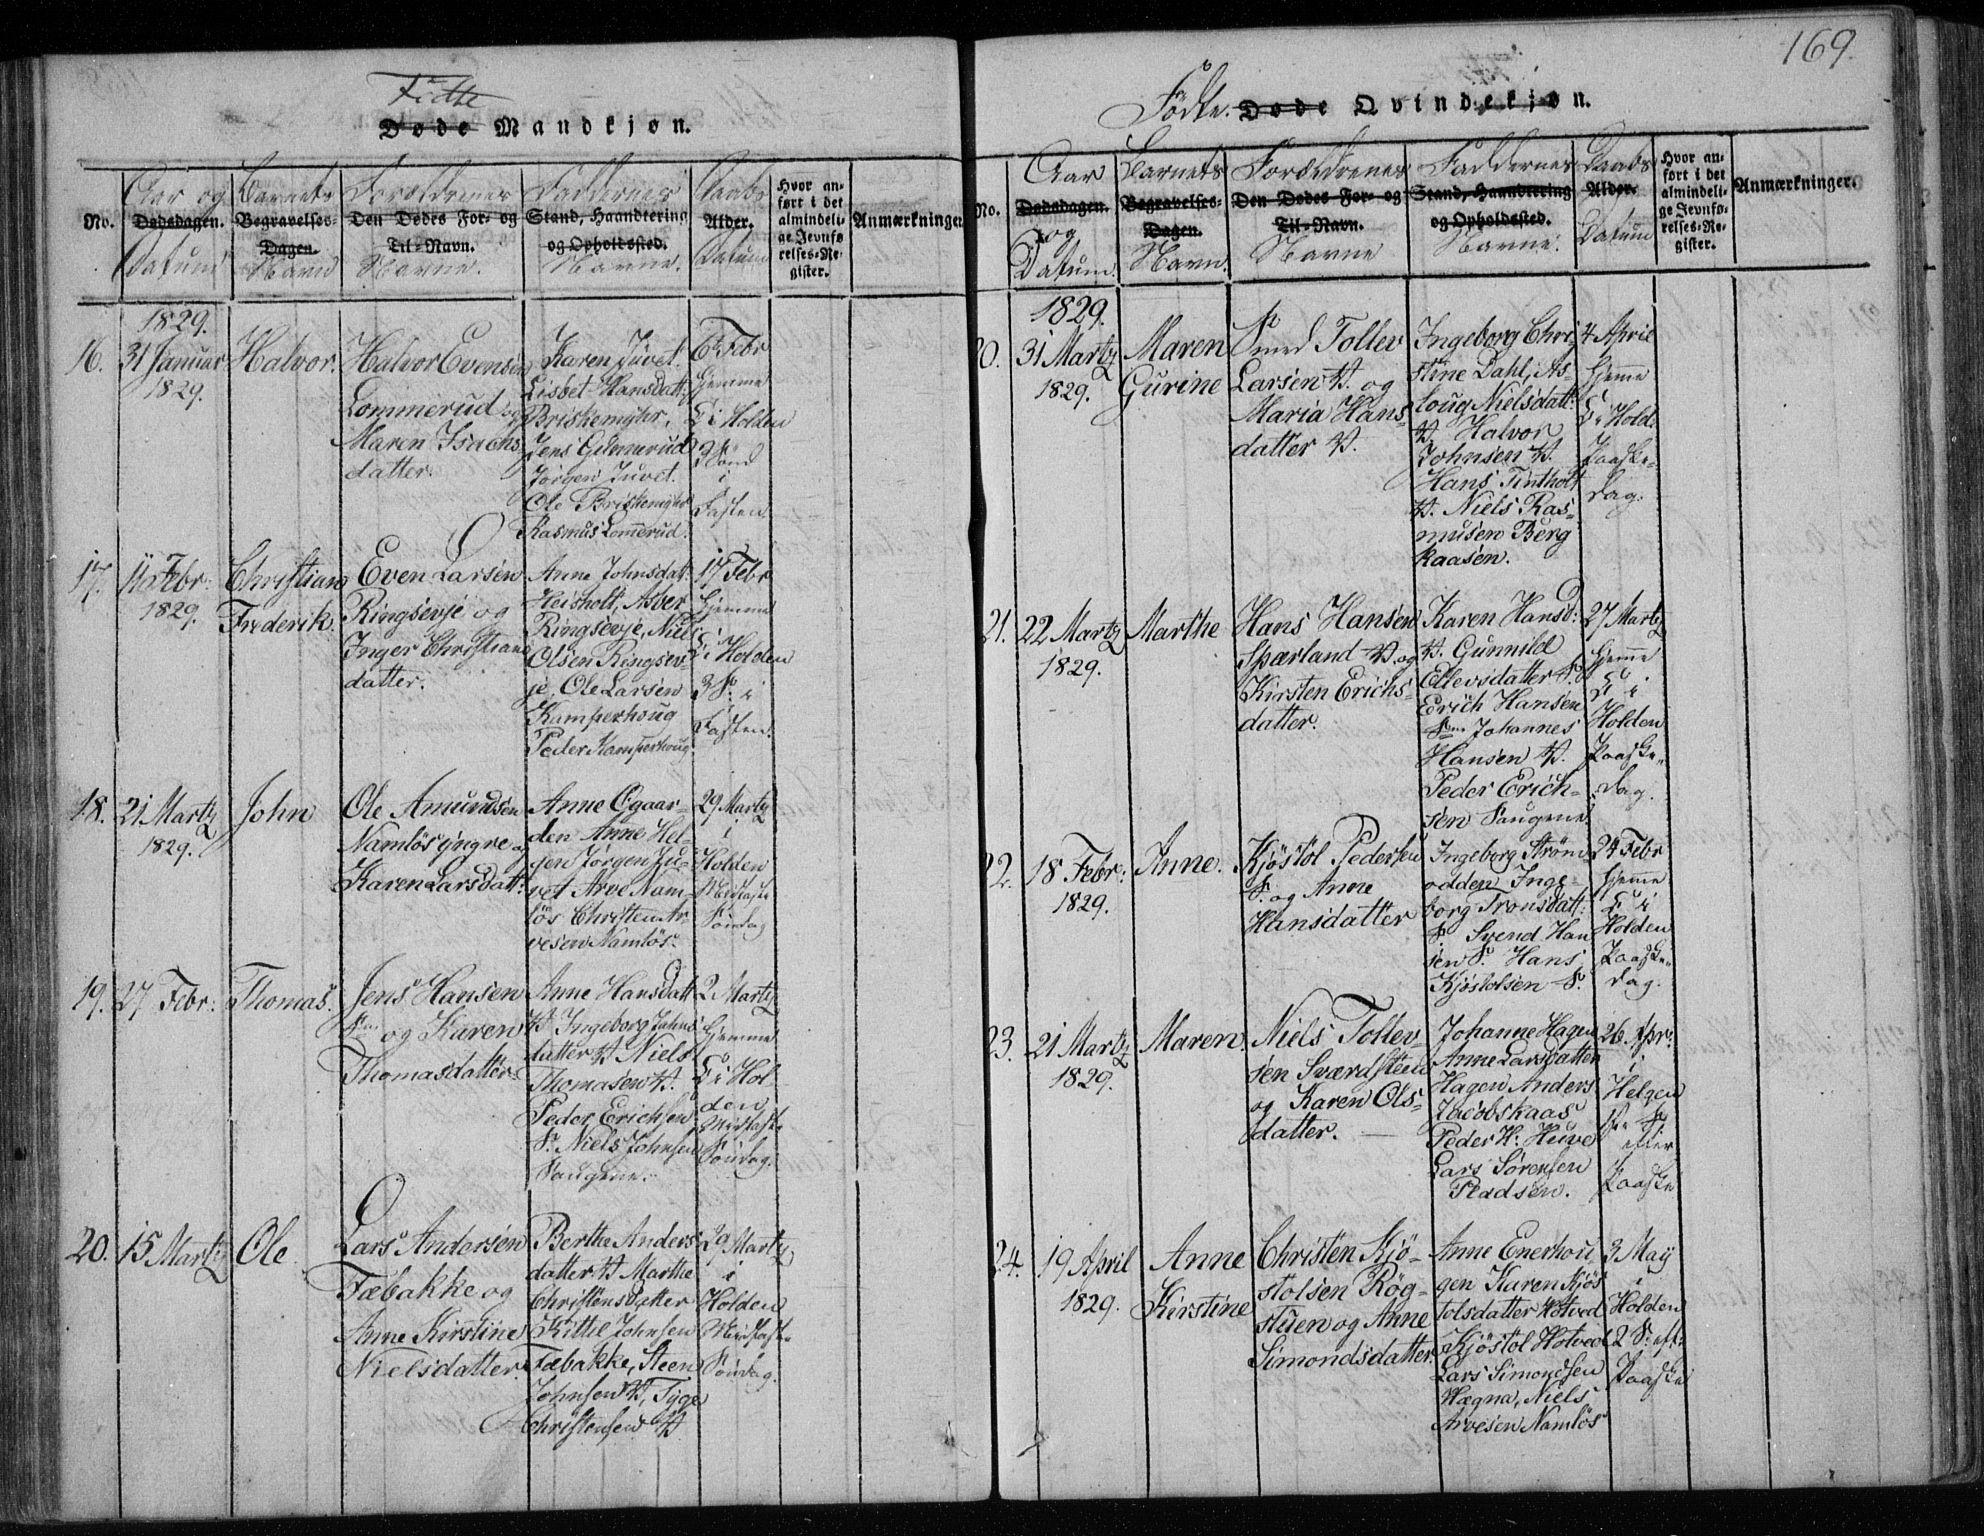 169.
Födte
Døde Mandkjøn.
No.
Aar og
Dødsdagen.
Datum
Barnets
Begravelses-
Dagen.
Navn
Forældrenes
Den Dødes For- og
Til-Navn.
Navne.
Faddernes
Stand, Haandtering
og Opholdssted.
Navne.
Daabs
Alder.
Datum
Hvor an-
ført i det
almindeli-
ge Jevnfø-
relses-Re-
gister.
Anmærkninger.
1829.
16.
31 Januar
1829.
Halvor.
Halvor Evensen
Lommerud og
Maren Isachs-
datter.
Karen Juvet.
Lisbet Hansdatt:
Briskemyhr,
Jens Gilmerud
Jörgen Juvet.
Ole Briskemyhr
Rasmus Lomerud.
6te Febr
hjemme
i Holden
3 Sönd
i
Fasten.
17.
11 Febr:
1829.
Christian
Frederik.
Even Larsen
Ringsevje og
Inger Christians
datter.
Anne Johnsdatt:
Heisholt, Asver
Ringsevje, Niels
Olsen Ringsev
je, Ole Larsen
Kamperhoug
Peder Kamperhoug.
17 Febr
hjemme
i Holden
3 S. i
Fasten.
18.
21. Martz
1829.
John
Ole Amundsen
Namlös yngre og
Karen Larsdatt:
Anne Ogaar-
den Anne Hel-
gen Jörgen Ju-
vet Arve Nam-
lös Christen Ar-
vesen Namlös.
29 Martz
i
Holden
Midfaste
Söndag
19.
27 Febr:
Thomas.
Jens Hansen
og Karen
Thomasdatter.
Anne Hansdatt
V. Ingeborg Johns
datter V. Niels
Thomasen V.
Peder Erichsen
S. Niels Johnsen
Saugene.
2 Martz
hjemme
i Hol-
den
Midfaste
Söndag.
20.
15 Martz
Ole
Lars Andersen
Fæbakke og
Anne Kirstine
Nielsdatter.
Berthe Anders
datter V. Marthe
Christensdatter
Kittil Johnsen
Fæbakke, Steen
Johnsen V, Tyge
Christensen V.
29 Martz
i
Holden
Midfaste
Söndag.
Födte. Døde Qvindekjøn.
No.
Aar
Dødsdagen.
og
Datum.
Barnets
Begravelses-
Dagen.
Navn.
Forældrenes
Den Dødes For- og
Til-Navn.
Navne
Faddernes
Stand, Haandtering
og Opholdssted.
Navne.
Daabs
Alder.
Datum
Hvor an-
ført i det
almindeli-
ge Jevnfø-
relses-Re-
gister.
Anmærkninger.
1829.
20.
31 Martz
1829.
Maren
Gurine
Smed Tollev
Larsen V. og
Maria Hans-
datter V.
Ingeborg Chri-
stine Dahl, As-
loug Nielsdatt:
V. Halvor
Johnsen V.
Hans Tintholt
V. Niels Ras-
musen Berg
kaasen.
4 April
hjemme
i Hold:
Paaske-
dag.
21.
22 Martz
1829.
Marthe
Hans Hansen
Spærland V. og
Kirsten Erichs-
datter.
Karen Hansd:
V. Gunnild
Ellevsdatter S.
Erich Hansen
Johannes
Hansen V.
Peder Erich-
sen Saugene.
27 Martz
hjemme
i
Holden
Paaske-
dag.
22.
18 Febr:
1829.
Anne.
Kjöstol Pedersen
S. og Anne
Hansdatter
Ingeborg Ström-
odden Inge-
borg Tronsdatt:
S. Svend Han
sen S. Hans
Kjöstolsen S.
24 Febr
hjemme
i
Holden
Paaske-
dag.
23.
21 Martz
1829.
Maren.
Niels Tollev-
sen Sværdsteen
og Karen Ols-
datter.
Johanne Hagen
Anne Larsdatter
Hagen Anders
Jacobskaas
Peder H. Huve
Lars Sörensen
Pladsen.
26. Apr:
i
Helgen
efter
Paaske
24.
19 April
1829.
Anne
Kirstine
Christen Kjö-
stolsen Rög-
stuen og Anne
Simondsdatter.
Anne Enerhou
gen Karen Kjös
tolsdatter Hotved
Kjöstol Hotved
Lars Simondsen
Hægna, Niels
Arvesen Namlös
3 Maij
i
Holden
2 S. eft:
Paaske